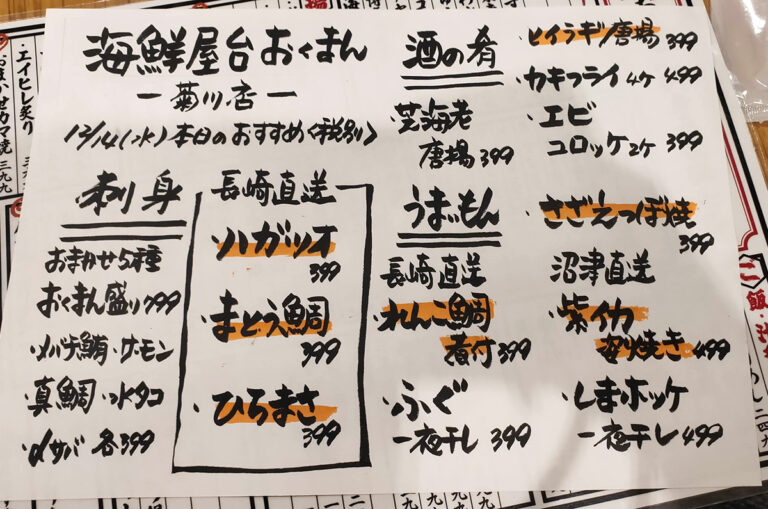 海鮮屋台おくまん
ー菊川店ー
12/14(水)本日のおすすめ<税別>
刺身
おまかせ5種
おくまん盛り999
・メバチ鮪・サーモン
・真鯛・水タコ
・〆サバ 各399
長崎直送
・ハガツオ
399
・まとう鯛
399
・ひらまさ
399
酒の肴
・芝海老
唐揚399
・ヒイラギ唐揚399
・カキフライ4ケ499
・エビ
コロッケ2ケ399
うまいもん
長崎直送
・れんこ鯛
煮付399
・ふぐ
一夜干し399
・さざえつぼ焼
399
沼津直送
・紫イカ
炙り焼き499
・しまホッケ
一夜干し499
・エイヒレ炙り
・おまかせカマ焼 三九九
飯・汁